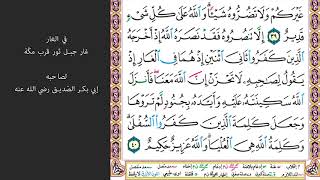 غَيْرَكُمْ وَلَا تَضُرُّوهُ شَيْـًٔا وَاللَّهُ عَلَىٰ كُلِّ شَيْءٍ
قَدِيرٌ ٣٩ إِلَّا تَنصُرُوهُ فَقَدْ نَصَرَهُ اللَّهُ إِذْ أَخْرَجَهُ
الَّذِينَ كَفَرُوا ثَانِيَ اثْنَيْنِ إِذْ هُمَا فِي الْغَارِ إِذْ
يَقُولُ لِصَاحِبِهِ لَا تَحْزَنْ إِنَّ اللَّهَ مَعَنَا فَأَنزَلَ
اللَّهُ سَكِينَتَهُ عَلَيْهِ وَأَيَّدَهُ بِجُنُودٍ لَّمْ تَرَوْهَا
وَجَعَلَ كَلِمَةَ الَّذِينَ كَفَرُوا السُّفْلَىٰ
وَكَلِمَةُ اللَّهِ هِيَ الْعُلْيَا وَاللَّهُ عَزِيزٌ حَكِيمٌ ٤٠
في الغار
غار جبل ثور قرب مكّة
لصاحبه
إبي بكر الصّديق رضي الله عنه